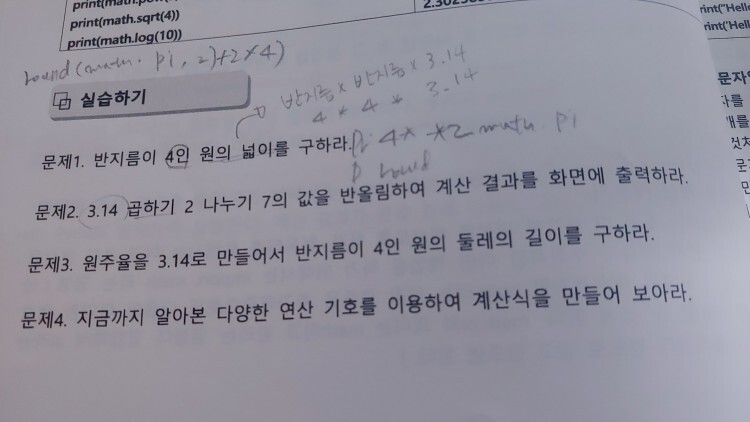 print(math.sqrt(4))
print(math.log(10))
round(math. pi, 2)+2*4)
실습하기
반지름 x 반지름 x 3.14
4 * 4 * 3.14
문제1. 반지름이 4인 원의 넓이를 구하라.
4* *2 math. pi
round
문제2. 3.14 곱하기 2 나누기 7의 값을 반올림하여 계산 결과를 화면에 출력하라.
문제3. 원주율을 3.14로 만들어서 반지름이 4인 원의 둘레의 길이를 구하라.
문제4. 지금까지 알아본 다양한 연산 기호를 이용하여 계산식을 만들어 보아라.
rint("Hell
rint('Hel
문자열